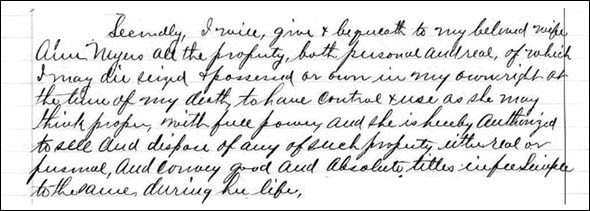 Secondly, I will, give & bequeath to my beloved wife
Myers all the property, both personal and real, of which
I may die seized & possessed or own in my own right at
the time of my death, to have control & use as she may
think proper, with full power and she is hereby Authorized
to sell And dispose of any of such property either real or
personal, And Convey good And Absolute titles in fee Simple
to the same during her life,